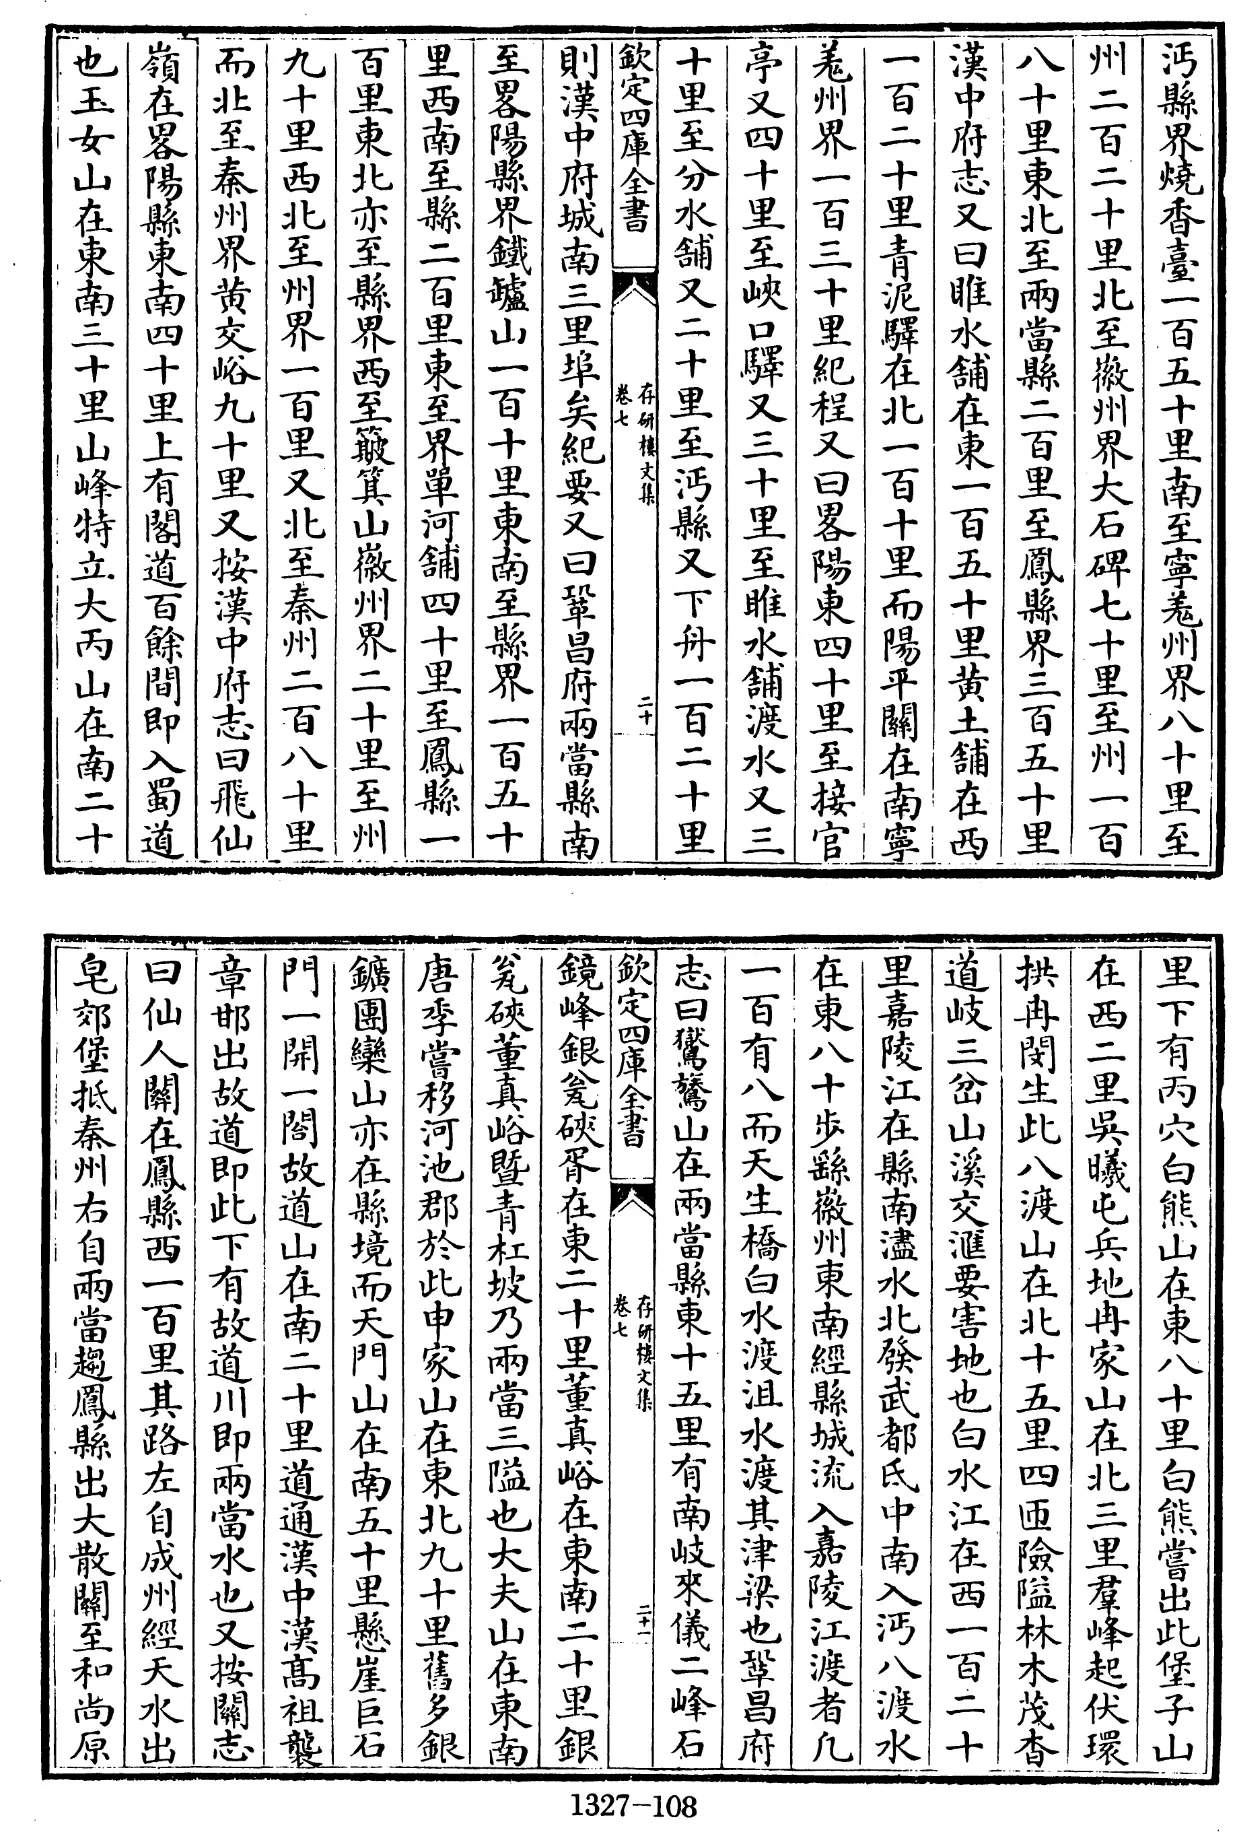 沔縣界燒香臺一百五十里南至寧羗州界八十里至
州二百二十里北至徽州界大石碑七十里至州一百
八十里東北至兩當縣二百里至鳳縣界三百五十里
漢中府志又曰睢水舖在東一百五十里黄土舖在西
一百二十里青泥驛在北一百十里而陽平關在南寧
羗州界一百三十里紀程又曰畧陽東四十里至接官
亭又四十里至峽口驛又三十里至睢水舖渡水又三
十里至分水舖又二十里至沔縣又下舟一百二十里
欽定四庫全書
存研樓文集
卷七
二十
則漢中府城南三里埠矣紀要又曰鞏昌府兩當縣南
至畧陽縣界鐵鑪山一百十里東南至縣界一百五十
里西南至縣二百里東至界單河舖四十里至鳳縣一
百里東北亦至縣界西至簸箕山徽州界二十里至州
九十里西北至州界一百里又北至秦州二百八十里
而北至秦州界黄交峪九十里又按漢中府志曰飛仙
嶺在畧陽縣東南四十里上有閣道百餘間即入蜀道
也玉女山在東南三十里山峰特立大丙山在南二十
里下有丙穴白熊山在東八十里白熊嘗出此堡子山
在西二里吳曦屯兵地冉家山在北三里羣峰起伏環
拱冉閔生此八渡山在北十五里四面險隘林木茂杳
道岐三岔山溪交滙要害地也白水江在西一百二十
里嘉陵江在縣南濜水北發武都氐中南入沔八渡水
在東八十步繇徽州東南經縣城流入嘉陵江渡者凡
一百有八而天生橋白水渡沮水渡其津梁也鞏昌府
志曰鸑鷟山在兩當縣東十五里有南岐來儀二峰石
欽定四庫全書
存研樓文集
卷七
二十一
鏡峰銀瓮硤胥在東二十里董真峪在東南二十里銀
瓮硤董真峪暨青杠坡乃兩當三隘也大夫山在東南
唐季嘗移河池郡於此申家山在東北九十里舊多銀
鑛團欒山亦在縣境而天門山在南五十里懸崖巨石
門一開一閤故道山在南二十里道通漢中漢髙祖襲
章邯出故道即此下有故道川即兩當水也又按關志
曰仙人關在鳳縣西一百里其路左自成州經天水出
皂郊堡抵秦州右自兩當趨鳳縣出大散關至和尚原
1327-108